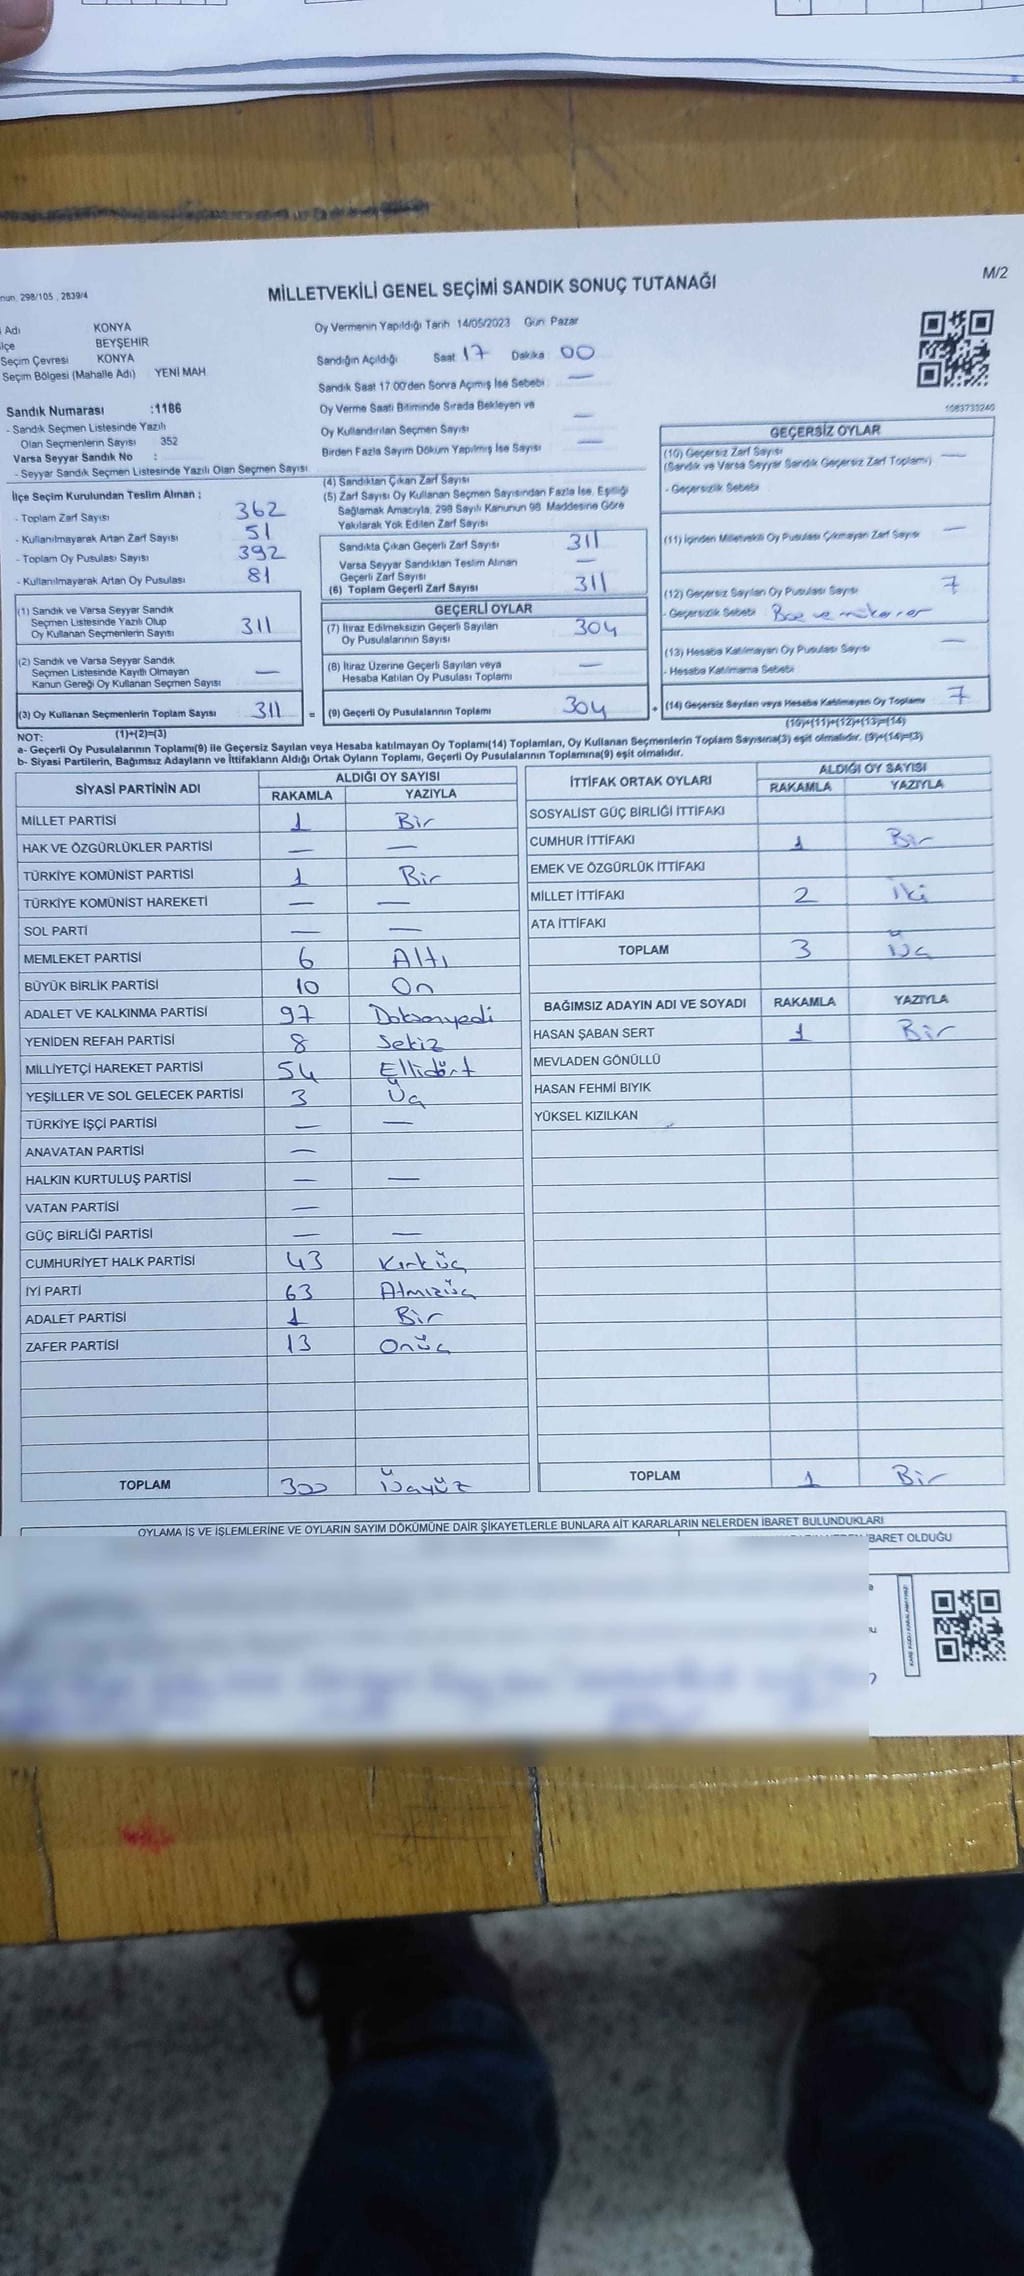 nun, 298/105 , 2839/4
MİLLETVEKİLİ GENEL SEÇİMİ SANDIK SONUÇ TUTANAĞI
M/2
Adı KONYA
lçe BEYŞEHİR
Seçim Çevresi KONYA
Seçim Bölgesi (Mahalle Adı) YENİ MAH.
Sandık Numarası :1186
- Sandık Seçmen Listesinde Yazılı
Olan Seçmenlerin Sayısı 352
Varsa Seyyar Sandık No :
- Seyyar Sandık Seçmen Listesinde Yazılı Olan Seçmen Sayısı
Oy Vermenin Yapıldığı Tarih 14/05/2023 Gün Pazar
Sandığın Açıldığı Saat 17 Dakika 00
Sandık Saat 17:00'den Sonra Açımış İse Sebebi : —
Oy Verme Saati Bitiminde Sırada Bekleyen ve
Oy Kullandırılan Seçmen Sayısı —
Birden Fazla Sayım Döküm Yapılmış İse Sayısı —
1083733240
İlçe Seçim Kurulundan Teslim Alınan ;
- Toplam Zarf Sayısı 362
- Kullanılmayarak Artan Zarf Sayısı 51
- Toplam Oy Pusulası Sayısı 392
- Kullanılmayarak Artan Oy Pusulası 81
(1) Sandık ve Varsa Seyyar Sandık
Seçmen Listesinde Yazılı Olup
Oy Kullanan Seçmenlerin Sayısı 311
(2) Sandık ve Varsa Seyyar Sandık
Seçmen Listesinde Kayıtlı Olmayan
Kanun Gereği Oy Kullanan Seçmen Sayısı —
(3) Oy Kullanan Seçmenlerin Toplam Sayısı 311
(1)+(2)=(3)
(4) Sandıktan Çıkan Zarf Sayısı
(5) Zarf Sayısı Oy Kullanan Seçmen Sayısından Fazla İse, Eşitliği
Sağlamak Amacıyla, 298 Sayılı Kanunun 98. Maddesine Göre
Yakılarak Yok Edilen Zarf Sayısı
Sandıkta Çıkan Geçerli Zarf Sayısı 311
Varsa Seyyar Sandıktan Teslim Alınan
Geçerli Zarf Sayısı —
(6) Toplam Geçerli Zarf Sayısı 311
GEÇERLİ OYLAR
(7) İtiraz Edilmeksizin Geçerli Sayılan
Oy Pusulalarının Sayısı 304
(8) İtiraz Üzerine Geçerli Sayılan veya
Hesaba Katılan Oy Pusulası Toplamı —
= (9) Geçerli Oy Pusulalarının Toplamı 304
GEÇERSİZ OYLAR
(10) Geçersiz Zarf Sayısı
(Sandık ve Varsa Seyyar Sandık Geçersiz Zarf Toplamı) —
- Geçersizlik Sebebi
(11) İçinden Milletvekili Oy Pusulası Çıkmayan Zarf Sayısı —
(12) Geçersiz Sayılan Oy Pusulası Sayısı 7
- Geçersizlik Sebebi ve mükerrer
(13) Hesaba Katılmayan Oy Pusulası Sayısı —
- Hesaba Katılmama Sebebi
+ (14) Geçersiz Sayılan veya Hesaba Katılmayan Oy Toplamı 7
(10)+(11)+(12)+(13)=(14)
NOT:
a- Geçerli Oy Pusulalarının Toplamı(9) ile Geçersiz Sayılan veya Hesaba katılmayan Oy Toplamı(14) Toplamları, Oy Kullanan Seçmenlerin Toplam Sayısına(3) eşit olmalıdır. (9)+(14)=(3)
b- Siyasi Partilerin, Bağımsız Adayların ve İttifakların Aldığı Ortak Oyların Toplamı, Geçerli Oy Pusulalarının Toplamına(9) eşit olmalıdır.
SİYASİ PARTİNİN ADI ALDIĞI OY SAYISI
RAKAMLA YAZIYLA
MİLLET PARTİSİ 1 Bir
HAK VE ÖZGÜRLÜKLER PARTİSİ — —
TÜRKİYE KOMÜNİST PARTİSİ 1 Bir
TÜRKİYE KOMÜNİST HAREKETİ — —
SOL PARTİ — —
MEMLEKET PARTİSİ 6 Altı
BÜYÜK BİRLİK PARTİSİ 10 On
ADALET VE KALKINMA PARTİSİ 97 Doksanyedi
YENİDEN REFAH PARTİSİ 8 Sekiz
MİLLİYETÇİ HAREKET PARTİSİ 54 Ellidört
YEŞİLLER VE SOL GELECEK PARTİSİ 3 Üç
TÜRKİYE İŞÇİ PARTİSİ — —
ANAVATAN PARTİSİ —
HALKIN KURTULUŞ PARTİSİ — —
VATAN PARTİSİ —
GÜÇ BİRLİĞİ PARTİSİ — —
CUMHURİYET HALK PARTİSİ 43 Kırküç
İYİ PARTİ 63 Atmışüç
ADALET PARTİSİ 1 Bir
ZAFER PARTİSİ 13 Onüç
TOPLAM 300 Üçyüz
İTTİFAK ORTAK OYLARI ALDIĞI OY SAYISI
RAKAMLA YAZIYLA
SOSYALİST GÜÇ BİRLİĞİ İTTİFAKI
CUMHUR İTTİFAKI 1 Bir
EMEK VE ÖZGÜRLÜK İTTİFAKI
MİLLET İTTİFAKI 2 İki
ATA İTTİFAKI
TOPLAM 3 Üç
BAĞIMSIZ ADAYIN ADI VE SOYADI RAKAMLA YAZIYLA
HASAN ŞABAN SERT 1 Bir
MEVLADEN GÖNÜLLÜ
HASAN FEHMİ BIYIK
YÜKSEL KIZILKAN
TOPLAM 1 Bir
OYLAMA İŞ VE İŞLEMLERİNE VE OYLARIN SAYIM DÖKÜMÜNE DAİR ŞİKAYETLERLE BUNLARA AİT KARARLARIN NELERDEN İBARET BULUNDUKLARI
BARET OLDUĞU